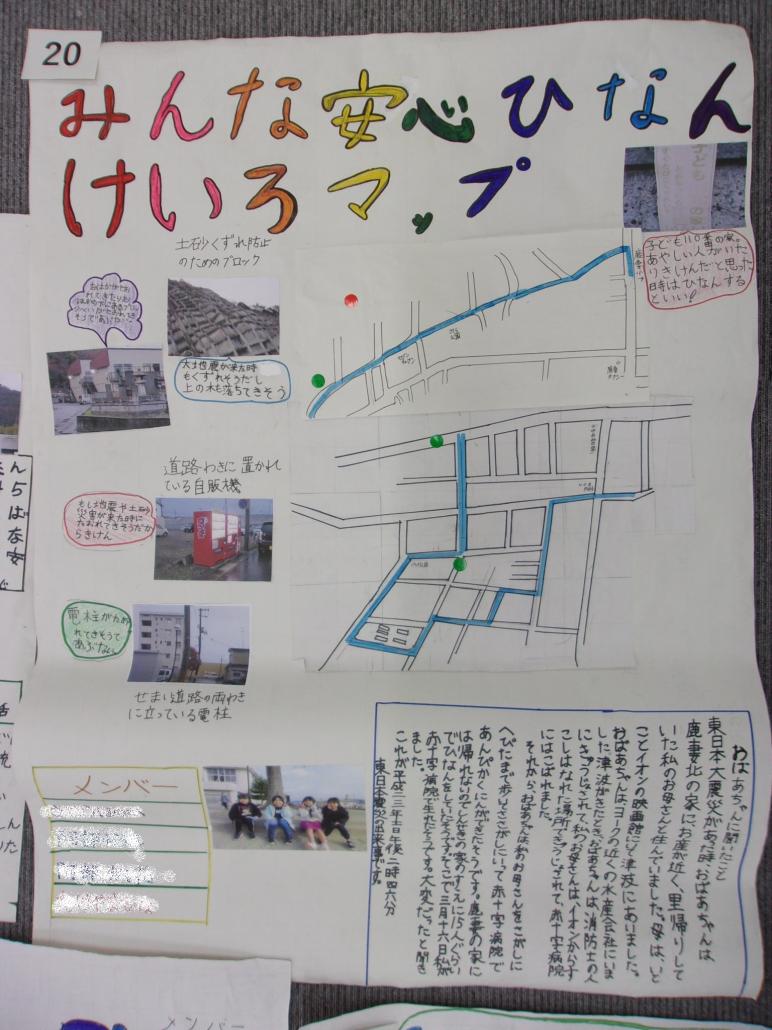 20
みんな安心ひなん
けいろマップ
土砂くずれ防止
のためのブロック
大地震が来た時
もくずれそうだし
上の木も落ちてきそう
子ども110番の家。
あやしい人がいた
りきけんだと思った
時はひなんする
といい!
道路わきに置かれ
ている自販機
もし地震や土砂
災害が来た時に
たおれてきそうだか
らきけん
電柱がたお
れてきそうで
あぶない。
せまい道路の両わき
に立っている電柱
メンバー
おばあちゃんに聞いたこと
東日本大震災があった時、おばあちゃんは
鹿妻北の家に、お産が近く、里帰りして
いた私のお母さんと住んでいました。母は、いと
ことイオンの映画館にて津波にあいました。
おばあちゃんは、ヨークの近くの水産会社にいま
した。津波がきたとき、おばあちゃんは、消防士の人
にきゅうじょされて、私のお母さんは、イオンから少
しはなれた場所できゅうじょされて、赤十字病院
にはこばれました。
それから、おばあちゃんは私のお母さんをさがしに
へびたまで歩いてさがしにいって、赤十字病院で
あんぴかくにんができたそうです。鹿妻の家に
は帰れないのでしんせきの家の
でひなんをしていたそうです。そこで三月十六日私が
赤十字病院で生れたそうです。大変だったと聞き
ました。
これが平成二三年三月十一日午後二時四六分
東日本大震災の出来事です。